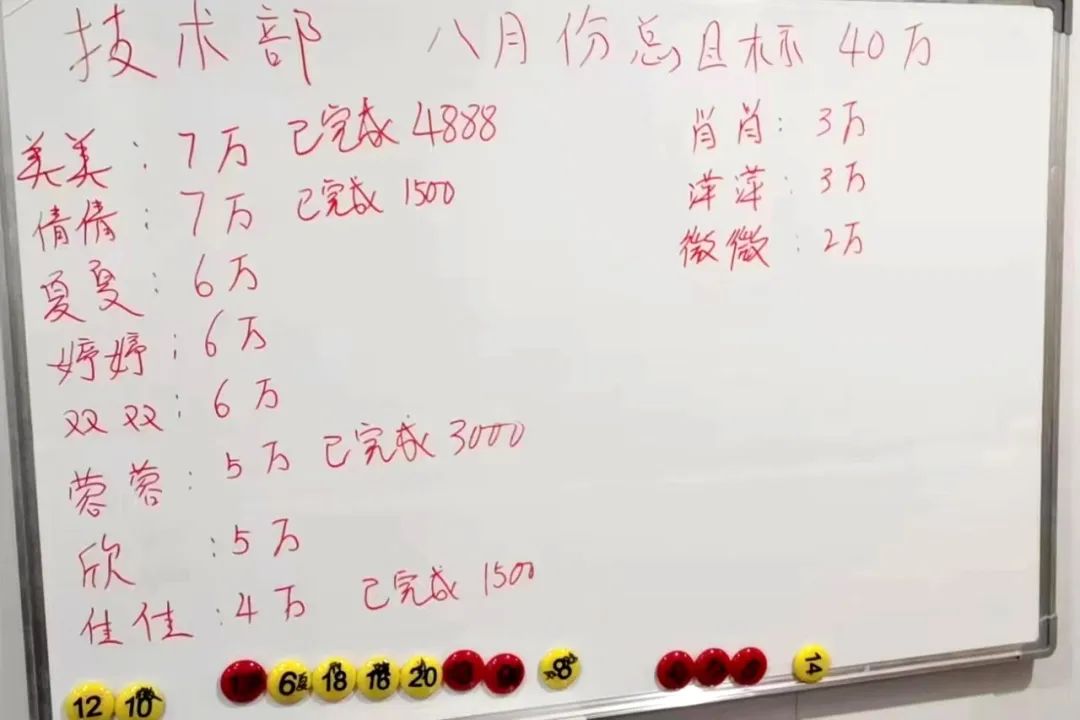 技术部 八月份总目标 40万
美美：7万 已完成 4888
倩倩：7万 已完成 1500
夏夏：6万
婷婷：6万
双双：6万
蓉蓉：5万 已完成 3000
欣：5万
佳佳：4万 已完成 1500
肖肖：3万
萍萍：3万
微微：2万
12 10 6 18 18 20 8 14